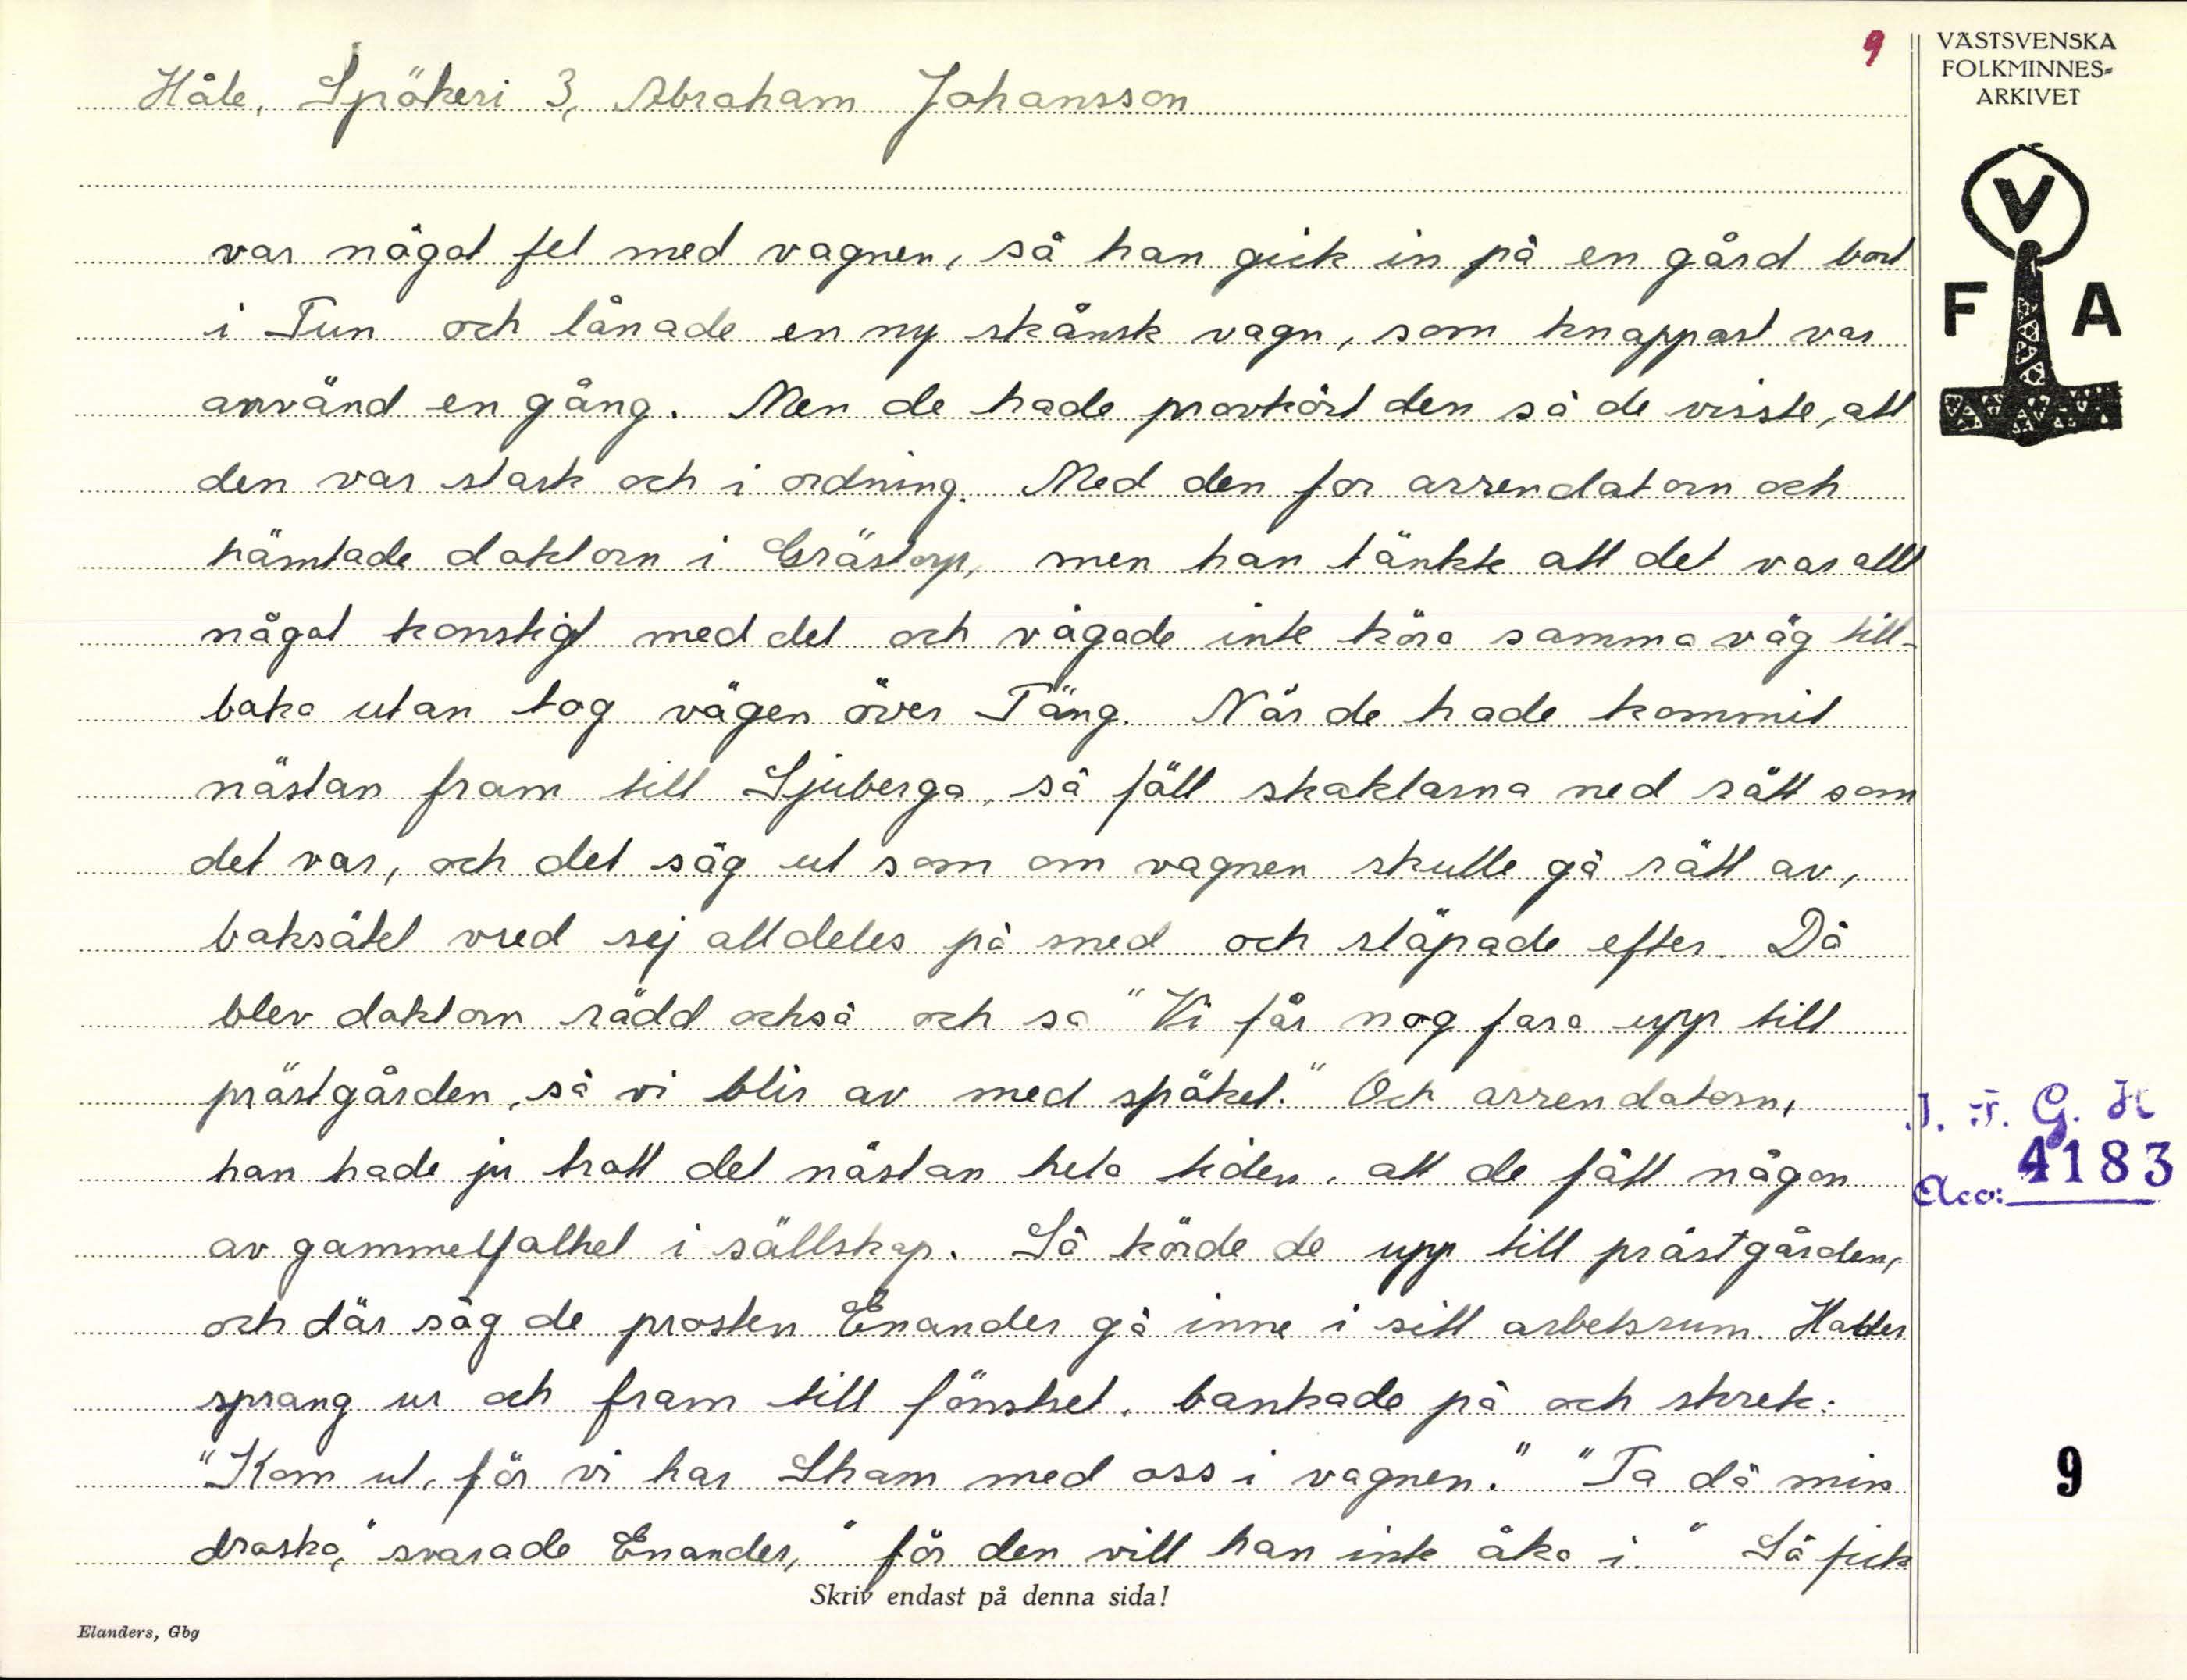 9
VÄSTSVENSKA
FOLKMINNES-
ARKIVET
Håle, Spökeri 3, Abraham Johansson
V
F A
var något fel med vagnen, så han gick in på en gård bort
i Tun och lånade en ny skånsk vagn, som knappast var
använd en gång. Men de hade provkört den så de visste, att
den var stark och i ordning. Med den for arrendatorn och
hämtade doktorn i Grästorp, men han tänkte att det var allt
något konstigt med det och vågade inte köra samma väg till-
baka utan tog vägen över Täng. När de hade kommit
nästan fram till Sjuberga, så föll skaklarna ned rätt som
det var, och det såg ut som om vagnen skulle gå rätt av,
baksätet vred sej alldeles på sned och släpade efter. Då
blev doktorn rädd också och sa "Vi får nog fara upp till
prästgården, så vi blir av med spöket." Och arrendatorn,
han hade ju trott det nästan hela tiden, att de fått någon
av gammelfolket i sällskap. Så körde de upp till prästgården,
och där såg de prosten Enander gå inne i sitt arbetsrum. Halder
sprang ur och fram till fönstret, bankade på och skrek:
"Kom ut, för vi har Skam med oss i vagnen." "Ta då min
droska," svarade Enander, "för den vill han inte åka i." Så fick
I. F. G. H
Acc: 4183
9
Skriv endast på denna sida!
Elanders, Gbg